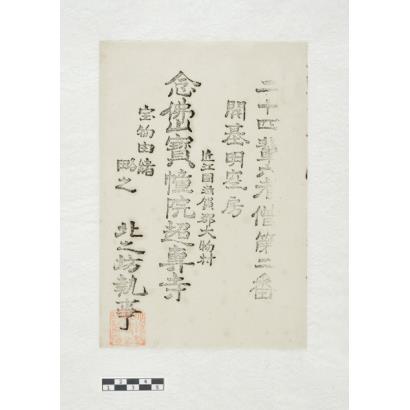 二十四輩 僧第二番
開基明空房
近江国滋賀郡大物村
念佛山寶幢院超専寺
宝物由緒
略之
北之坊執事